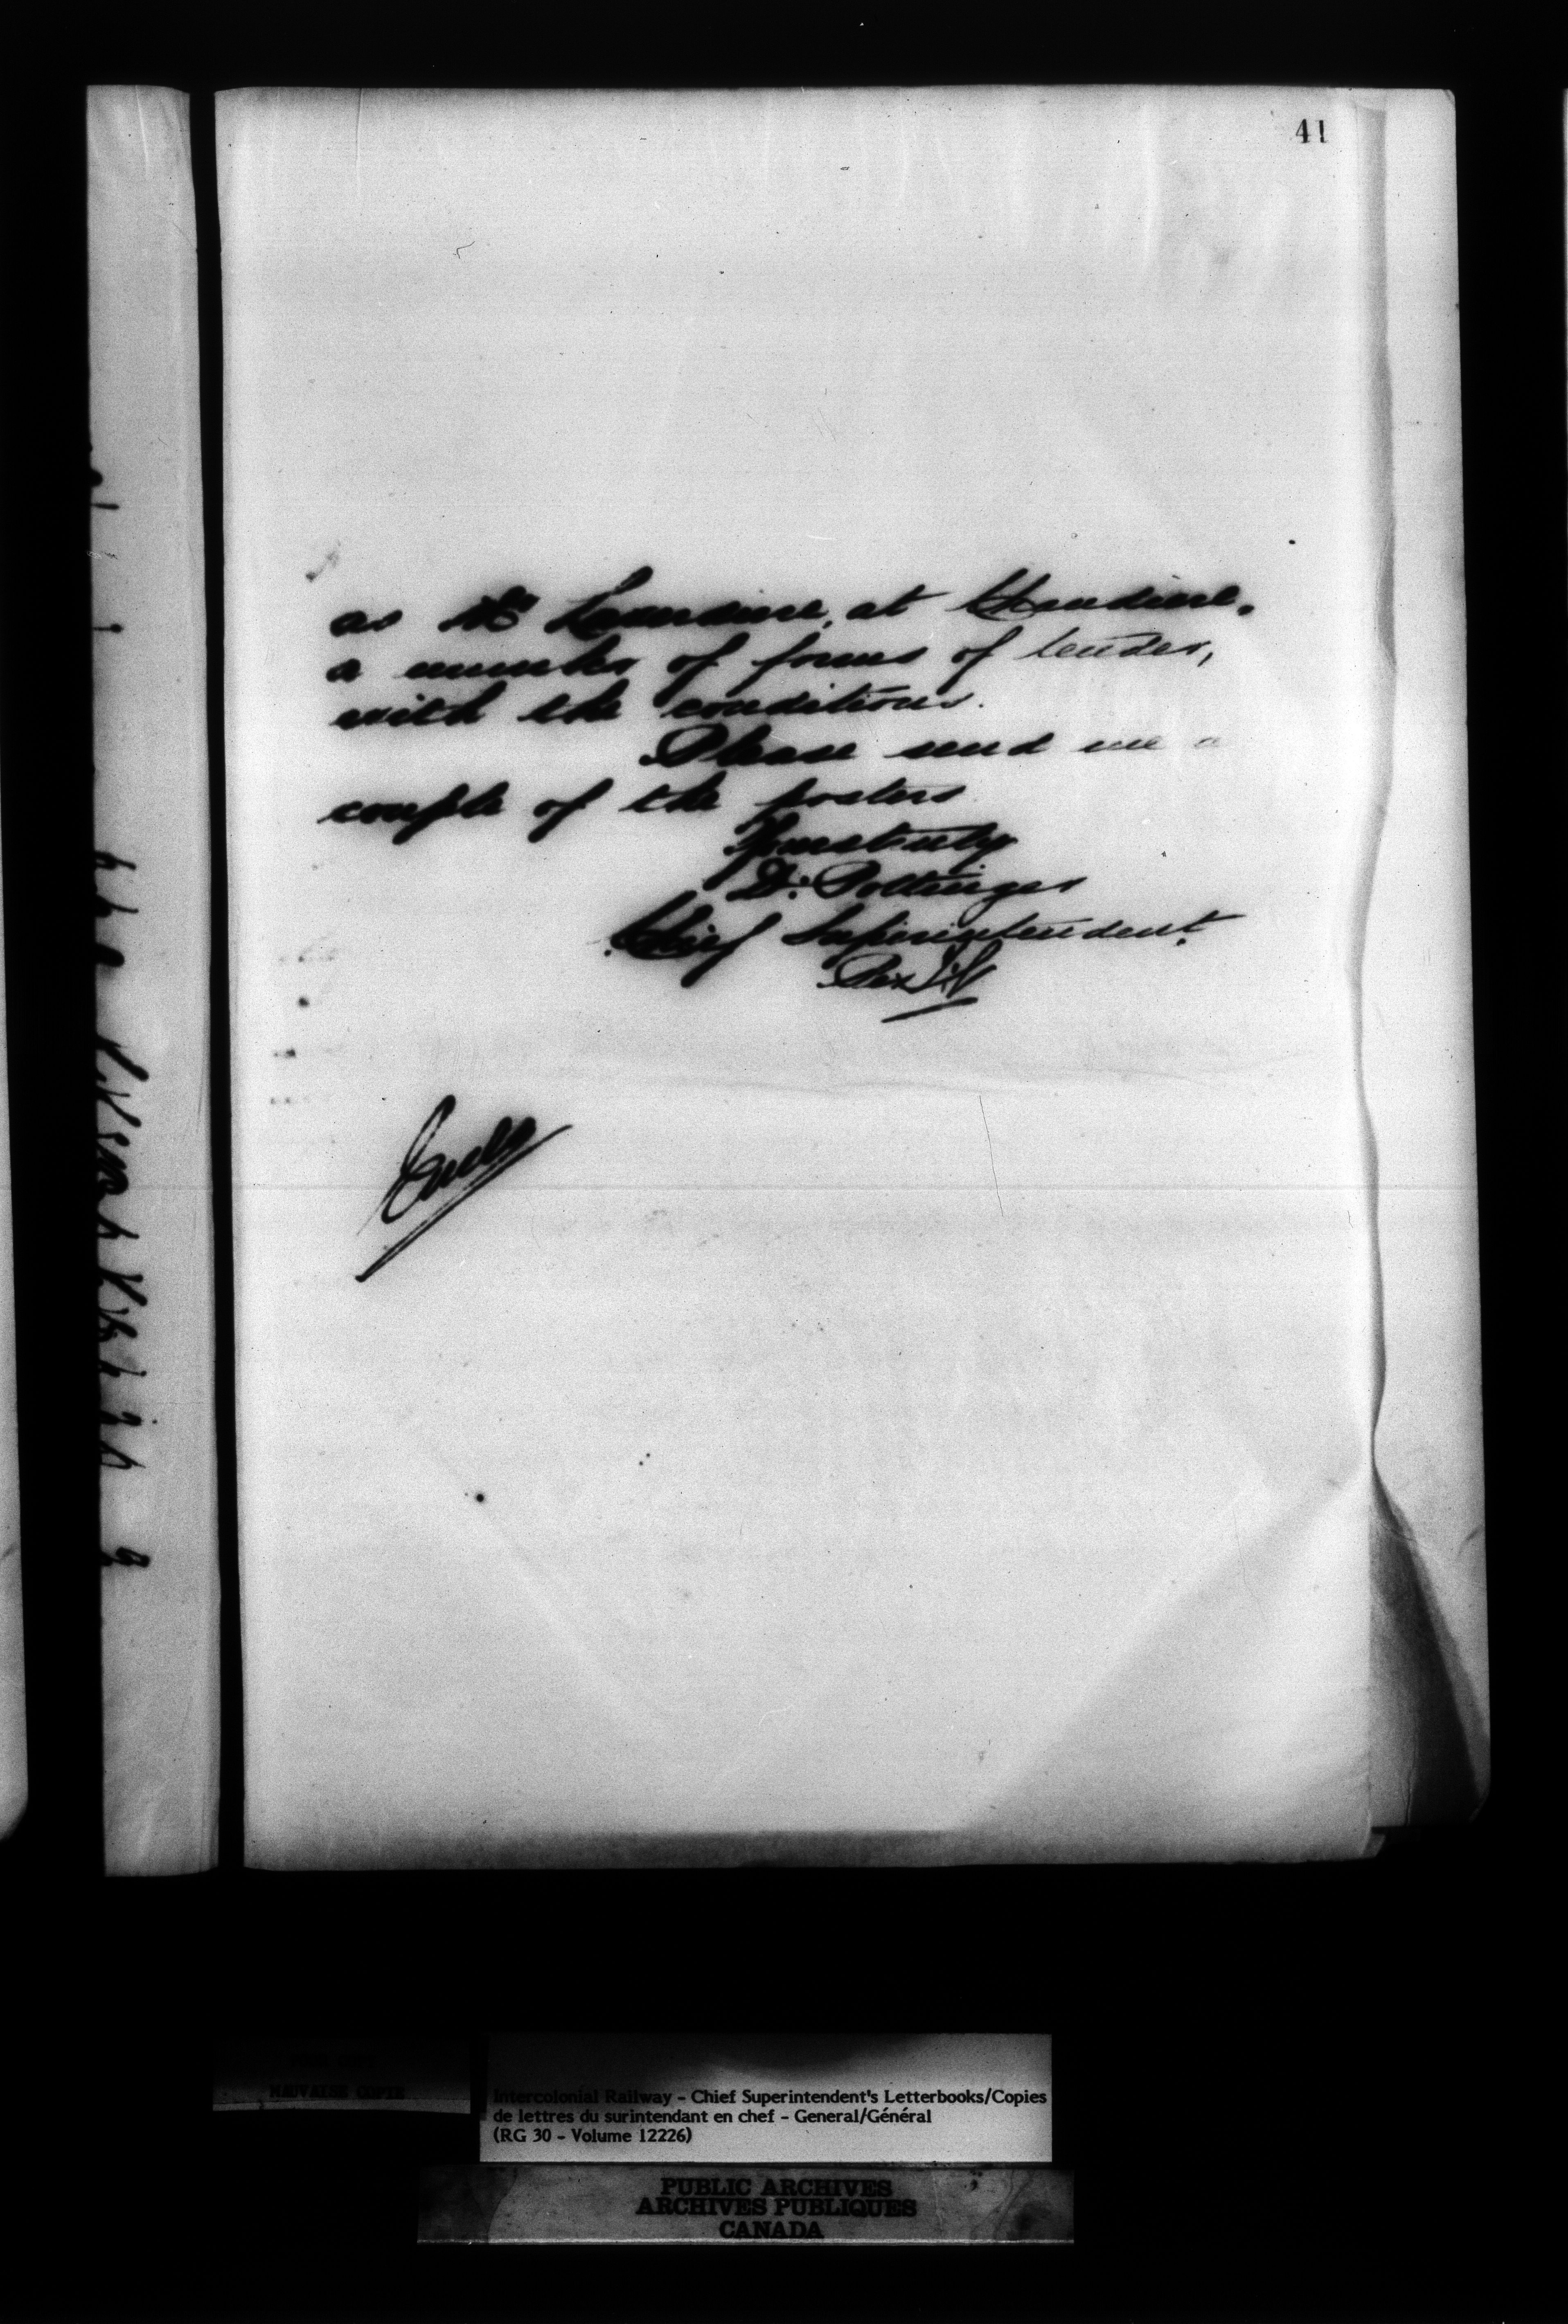 41
as Mr Lauriere, at Chaudiere.
a number of forms of tender,
with the conditions.
Please send me a
couple of the posters
Yours truly
D. Pottinger
Chief Superintendent.
Per
MAUVAISE COPIE
Intercolonial Railway - Chief Superintendent's Letterbooks/Copies
de lettres du surintendant en chef - General/Général
(RG 30 - Volume 12226)
PUBLIC ARCHIVES
ARCHIVES PUBLIQUES
CANADA